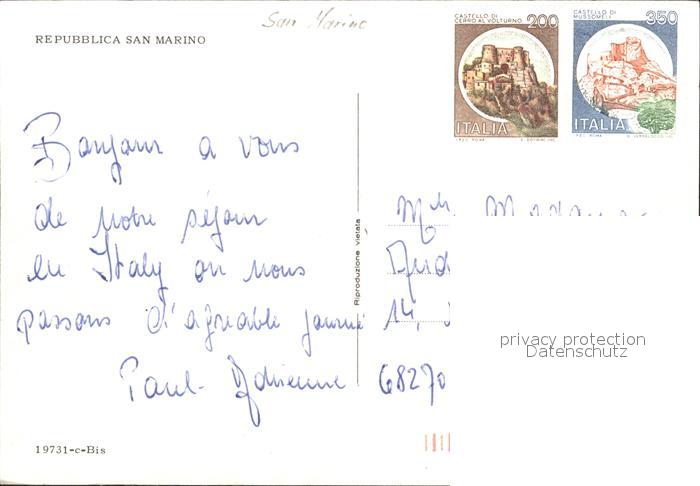 San Marino
REPUBBLICA SAN MARINO
CASTELLO DI CERRO AL VOLTURNO 200
ITALIA
CASTELLO DI MUSSOMELI 350
ITALIA
Bonjour a vous
de notre séjour
en Italy on nous
passons d'agréable journé
Paul-Adrienne
Riproduzione vietata
14,
68270
privacy protection
Datenschutz
19731-c-Bis